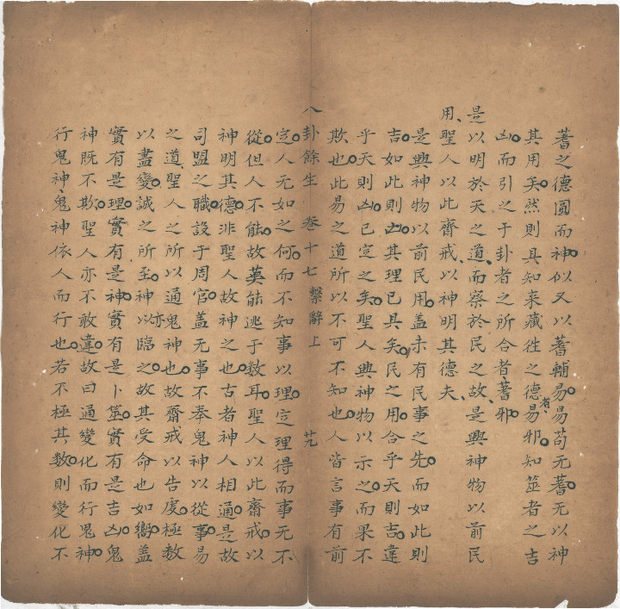 蓍之德圓而神似又以蓍輔易易苟无蓍无以神
其用矣然則具知来藏徃之德易邪知筮者之吉
凶而引之于卦者之所合者蓍邪
是以明於天之道而察於民之故是興神物以前民
用聖人以此齋戒以神明其德夫
是興神物以前民用盖未有民事之先而如此則
吉如此則凶其理已具矣民之用合乎天則吉違
乎天則凶已定之矣聖人興神物以示之而果不
欺也此易之道所以不可不知也人皆言事有前
八卦餘生 卷十七 繫辭上 廿九
定人无如之何而不知事以理定理得而事无不
從但人不能故英能逃于数耳聖人以此齋戒以
神明其德非聖人故神之也古者神人相通是故
司盟之職設于周官盖无事不奉鬼神以從事易
之道聖人之所以通鬼神也故齋戒以告虔極数
以盡變誠之所至神亦以臨之故其受命也如嚮盖
實有是理實有是神實有是卜筮實有是吉凶鬼
神既不欺聖人亦不敢違故曰通變化而行鬼神
行鬼神鬼神依人而行也若不極其数則變化不